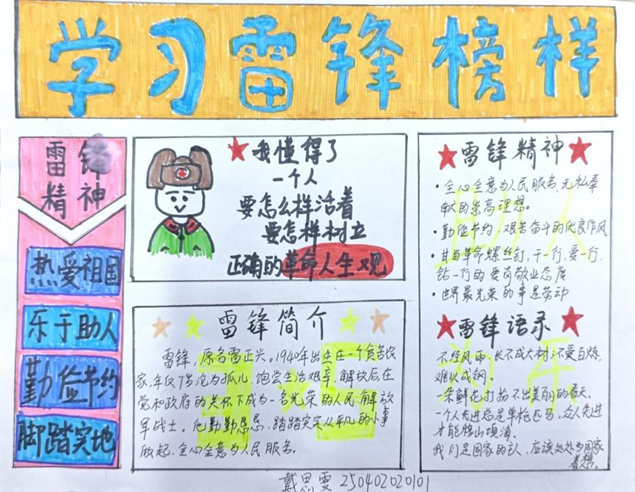 学习雷锋榜样
雷锋
精神
热爱祖国
乐于助人
勤俭节约
脚踏实地
我懂得了
一个人
要怎么样活着
要怎样树立
正确的革命人生观
雷锋简介
雷锋,原名雷正兴,1940年出生在一个贫苦农
家,年仅7岁沦为孤儿,饱尝生活艰辛,解放后,在
党和政府的关怀下成为一名光荣的人民解放
军战士,他勤勤恳恳、踏踏实实从平凡的小事
做起,全心全意为人民服务。
雷锋精神
·全心全意为人民服务,无私奉
献的崇高理想。
·勤俭节约,艰苦奋斗的优良作风
·甘当革命螺丝钉,干一行,爱一行,
钻一行的爱岗敬业态度
·世界最光荣的事是劳动
雷锋语录
不经风雨,长不成大树;不受百炼,
难以成钢。
一朵鲜花打扮不出美丽的春天。
一个人先进总是单枪匹马,众人先进
才能移山填海。
我们是国家的主人,应该处处为国家
着想。
戴思雯 250402020101